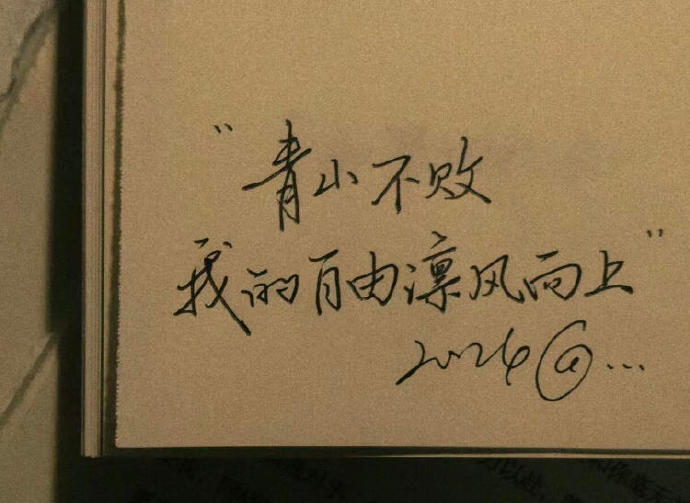 “青山不败
我的自由凛风向上”
2024@...